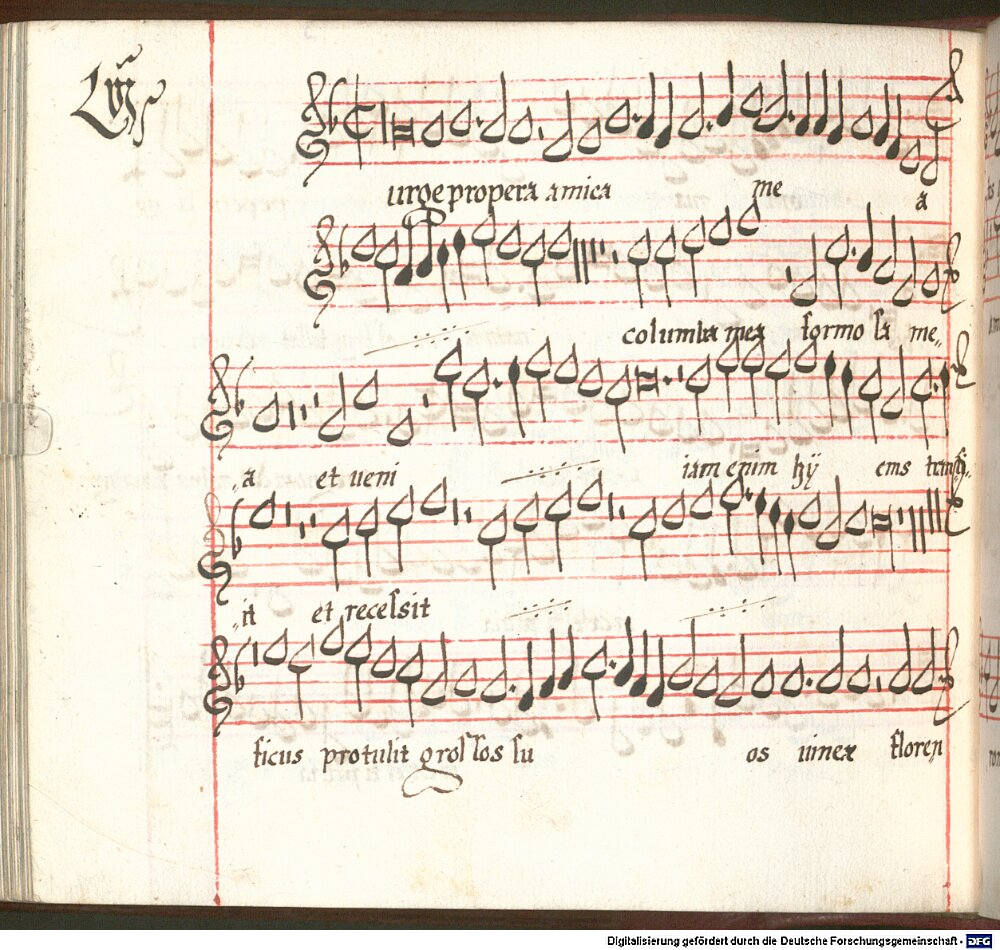 urge propera amica me a
columba mea formosa me„
„a et veni iam enim hÿ ems transi„
„it et recessit
ficus protulit grossos su os vinex floren
Digitalisierung gefördert durch die Deutsche Forschungsgemeinschaft - DFG